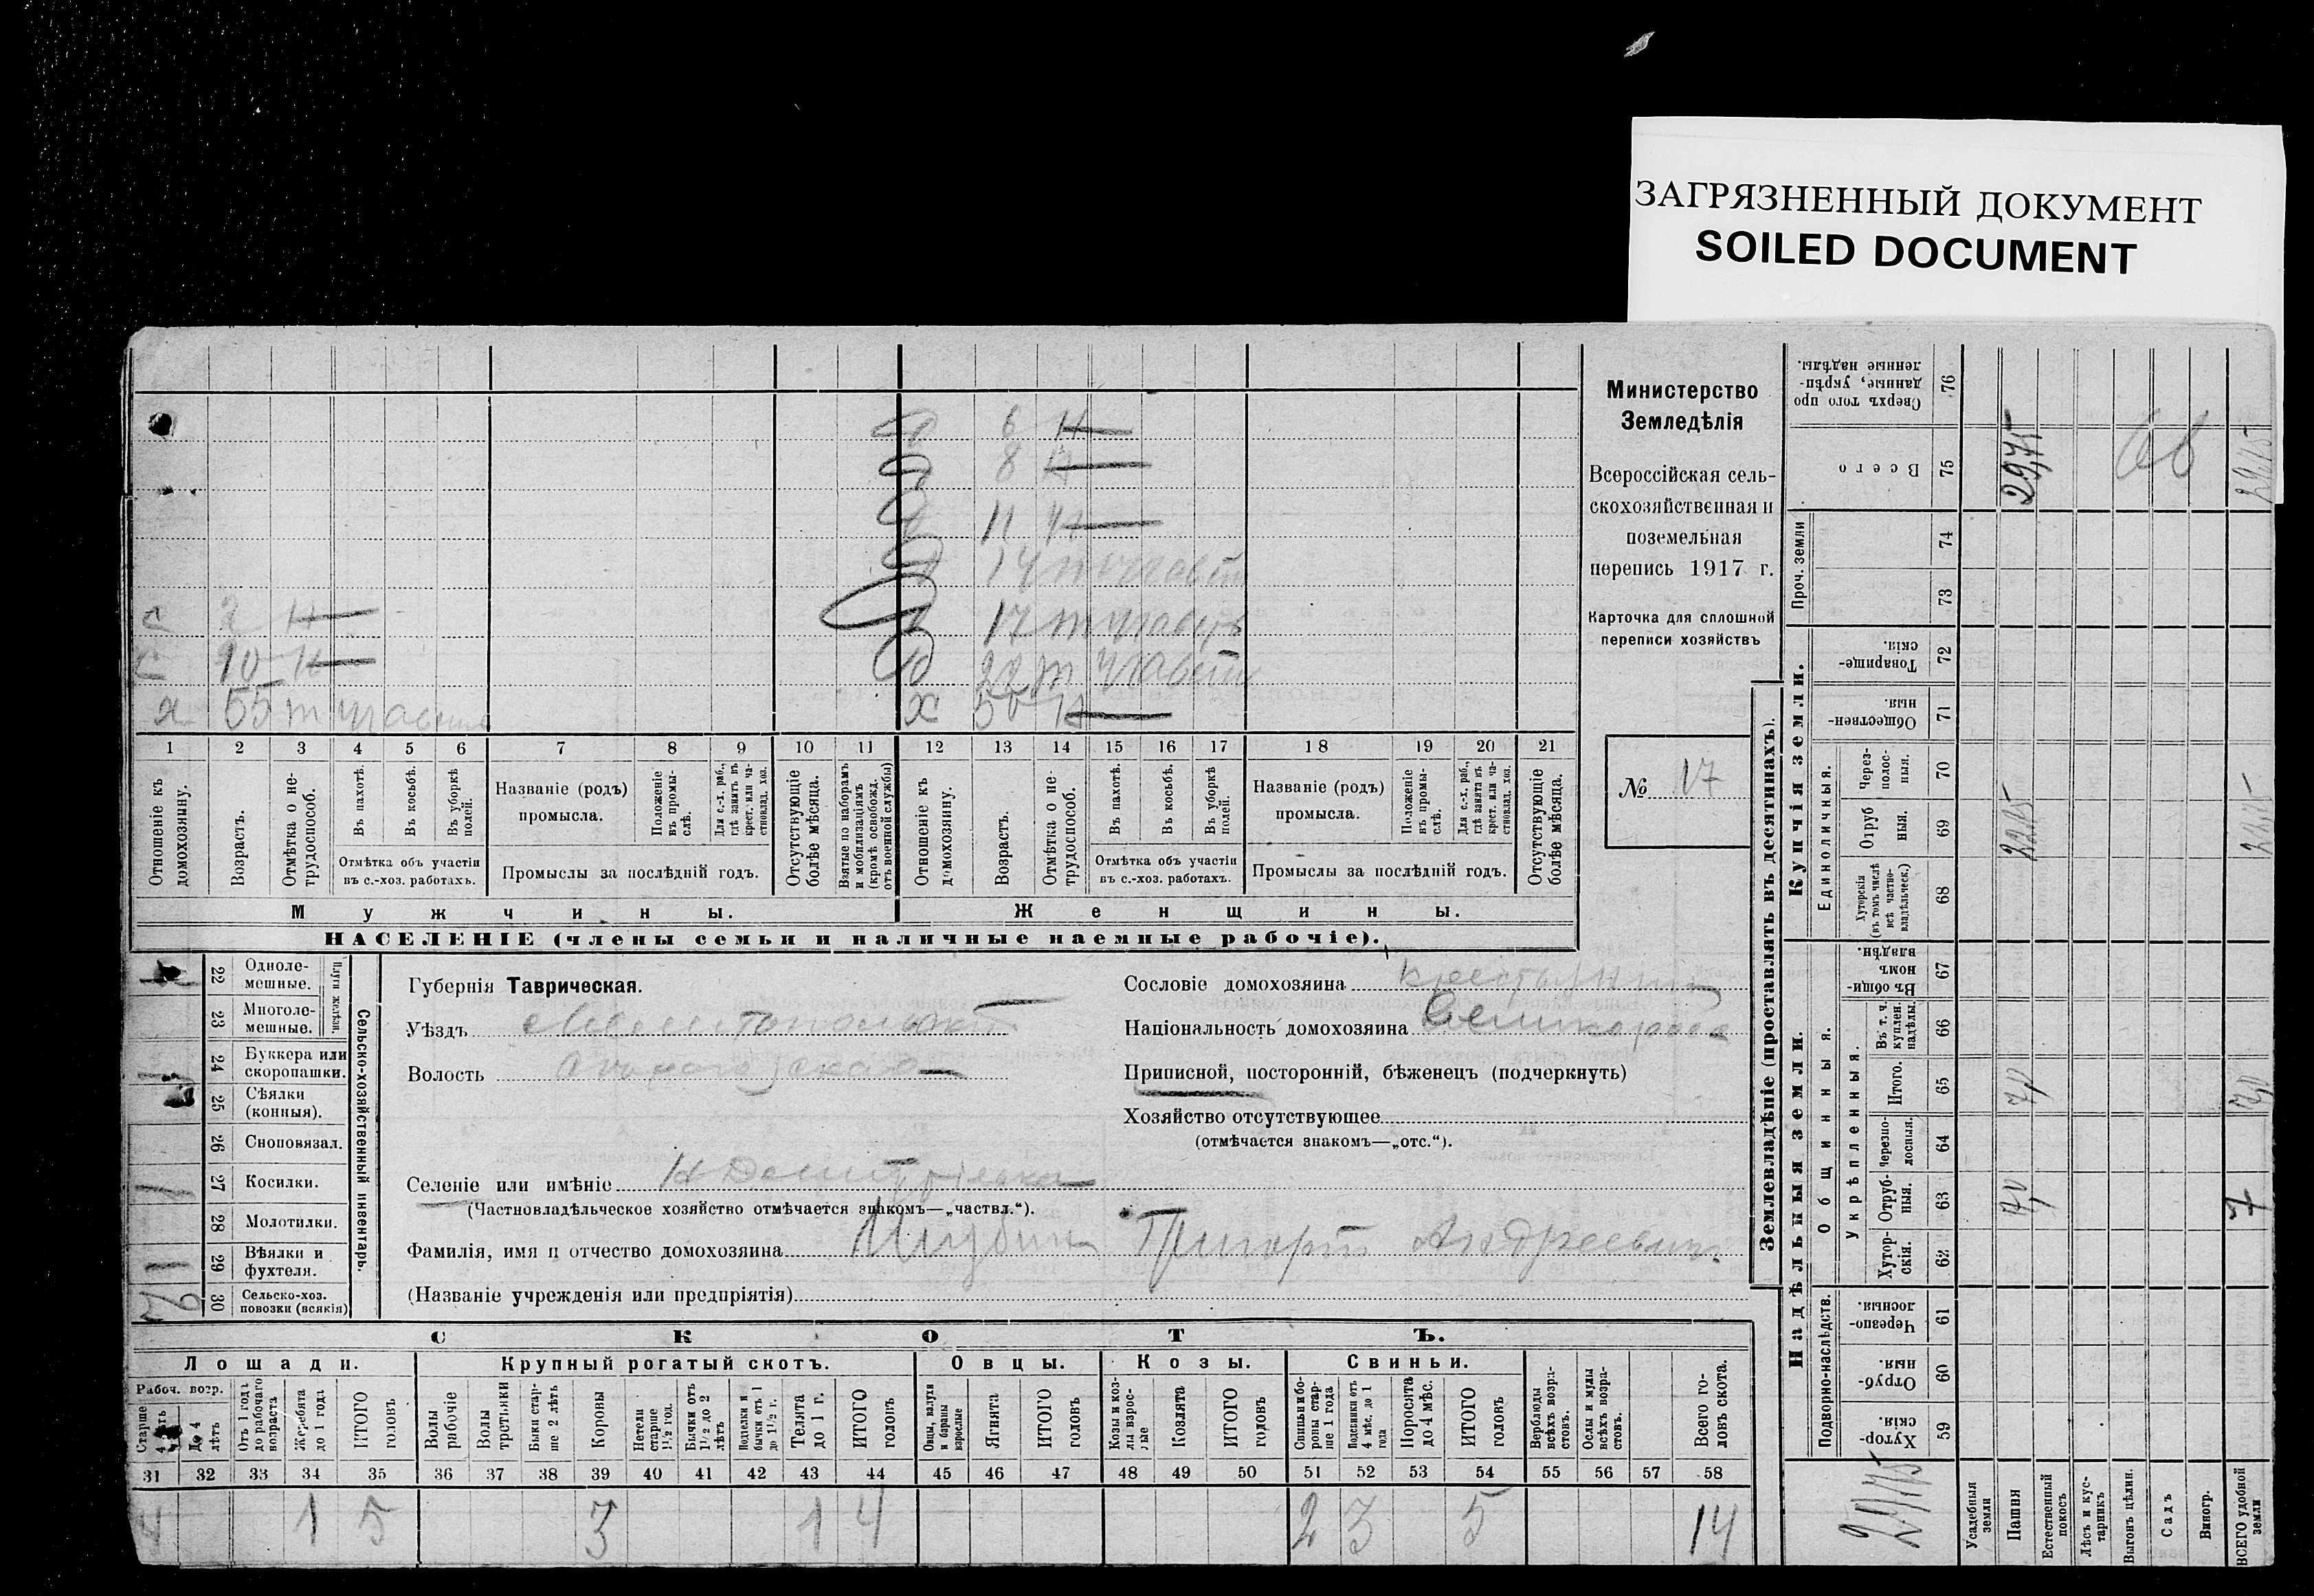 ЗАГРЯЗНЕННЫЙ ДОКУМЕНТ
SOILED DOCUMENT
Министерство
Земледѣлія
Всероссійская сель-
скохозяйственная и
поземельная
перепись 1917 г.
Карточка для сплошной
переписи хозяйствъ
№ 17
6 н
8 н
11 н
14
17
с 2 н
с 10 н
22
х 55 т
х 50 н
1 2 3 4 5 6 7 8 9 10 11 12 13 14 15 16 17 18 19 20 21
Отношеніе къ домохозяину.
Возрастъ.
Отмѣтка о не-трудоспособ.
Въ пахотѣ.
Въ косьбѣ.
Въ уборкѣ полей.
Отмѣтка объ участіи въ с.-хоз. работахъ.
Названіе (родъ) промысла.
Положеніе въ промы-слѣ.
Для с.-х. раб., гдѣ занятъ въ крест. или ча-стновлад. хоз.
Промыслы за послѣдній годъ.
Отсутствующіе болѣе мѣсяца.
Взятые по наборамъ и мобилизаціямъ (кромѣ освобожд. отъ военной службы)
Отношеніе къ домохозяину.
Возрастъ.
Отмѣтка о не-трудоспособ.
Въ пахотѣ.
Въ косьбѣ.
Въ уборкѣ полей.
Отмѣтка объ участіи въ с.-хоз. работахъ.
Названіе (родъ) промысла.
Положеніе въ промы-слѣ.
Для с.-х. раб., гдѣ занята въ крест. или ча-стновлад. хоз.
Промыслы за послѣдній годъ.
Отсутствующіе болѣе мѣсяца.
Мужчины.
Женщины.
НАСЕЛЕНІЕ (члены семьи и наличные наемные рабочіе).
22 Одноле-мешные.
23 Многоле-мешные.
24 Буккера или скоропашки.
25 Сѣялки (конныя).
26 Сноповязал.
27 Косилки.
28 Молотилки.
29 Вѣялки и фухтеля.
30 Сельско-хоз. повозки (всякія)
Сельско-хозяйственный инвентарь.
Губернія Таврическая.
Уѣздъ Мелитопольскій
Волость
Сословіе домохозяина крестьянин
Національность домохозяина Великоросс
Приписной, посторонній, бѣженецъ (подчеркнуть)
Хозяйство отсутствующее
(отмѣчается знакомъ—„отс.“).
Селеніе или имѣніе
(Частновладѣльческое хозяйство отмѣчается знакомъ—„частвл.“).
Фамилія, имя и отчество домохозяина Григорій Андреевич
(Названіе учрежденія или предпріятія)
СКОТЪ.
Лошади. Крупный рогатый скотъ. Овцы. Козы. Свиньи.
Рабоч. возр.
Старше 4 лѣтъ
До 4 лѣтъ
Отъ 1 года до рабочаго возраста
Жеребята до 1 года
ИТОГО головъ
Волы рабочіе
Волы третьяки
Быки стар-ше 2 лѣтъ
Коровы
Нетели старше 1½ год.
Бычки отъ 1½ до 2 лѣтъ
Телята до 1 г.
ИТОГО головъ
Овцы, валухи и бараны взрослые
Ягнята
ИТОГО головъ
Козы и коз-лы взрос-лые
Козлята
ИТОГО головъ
Свиньи и бо-ровы стар-ше 1 года
Подсвинки отъ 4 мѣс. до 1 года
Поросята до 4 мѣс.
ИТОГО головъ
Верблюды всѣхъ возра-стовъ.
Ослы и мулы всѣхъ возра-стовъ.
Всего го-ловъ скота.
31 32 33 34 35 36 37 38 39 40 41 42 43 44 45 46 47 48 49 50 51 52 53 54 55 56 57 58
4 1 5 3 1 4 2 3 5 14
Землевладѣніе (проставлять въ десятинахъ).
Надѣльныя земли.
Купчія земли.
Проч. земли
Подворно-наслѣдств.
Общинныя.
Укрѣпленныя.
Единоличныя.
59 Хутор-скія.
60 Отруб-ныя.
61 Черезпо-лосныя.
62 Хутор-скія.
63 Отруб-ныя.
64 Черезпо-лосныя.
65 Итого.
66 Въ т. ч. куплен. надѣлы.
67 Въ общи-номъ владѣн.
68 Хуторскія (въ томъ числѣ всѣ частно-владѣльческ.)
69 Отруб ныя.
70 Через-полос-ныя.
71 Обществен-ныя.
72 Товарище-скія.
73
74
75 Всего
76 Сверхъ того про данные, укрѣп-ленные надѣлы.
Усадебныя земли
Пашня
Естественный покосъ
Лѣсъ и кус-тарникъ
Выгонъ цѣлин.
Садъ
Виногр.
ВСЕГО удобной земли
29,75
7,0
7,0
22,75
29,75
7
7,0
22,75
29,75